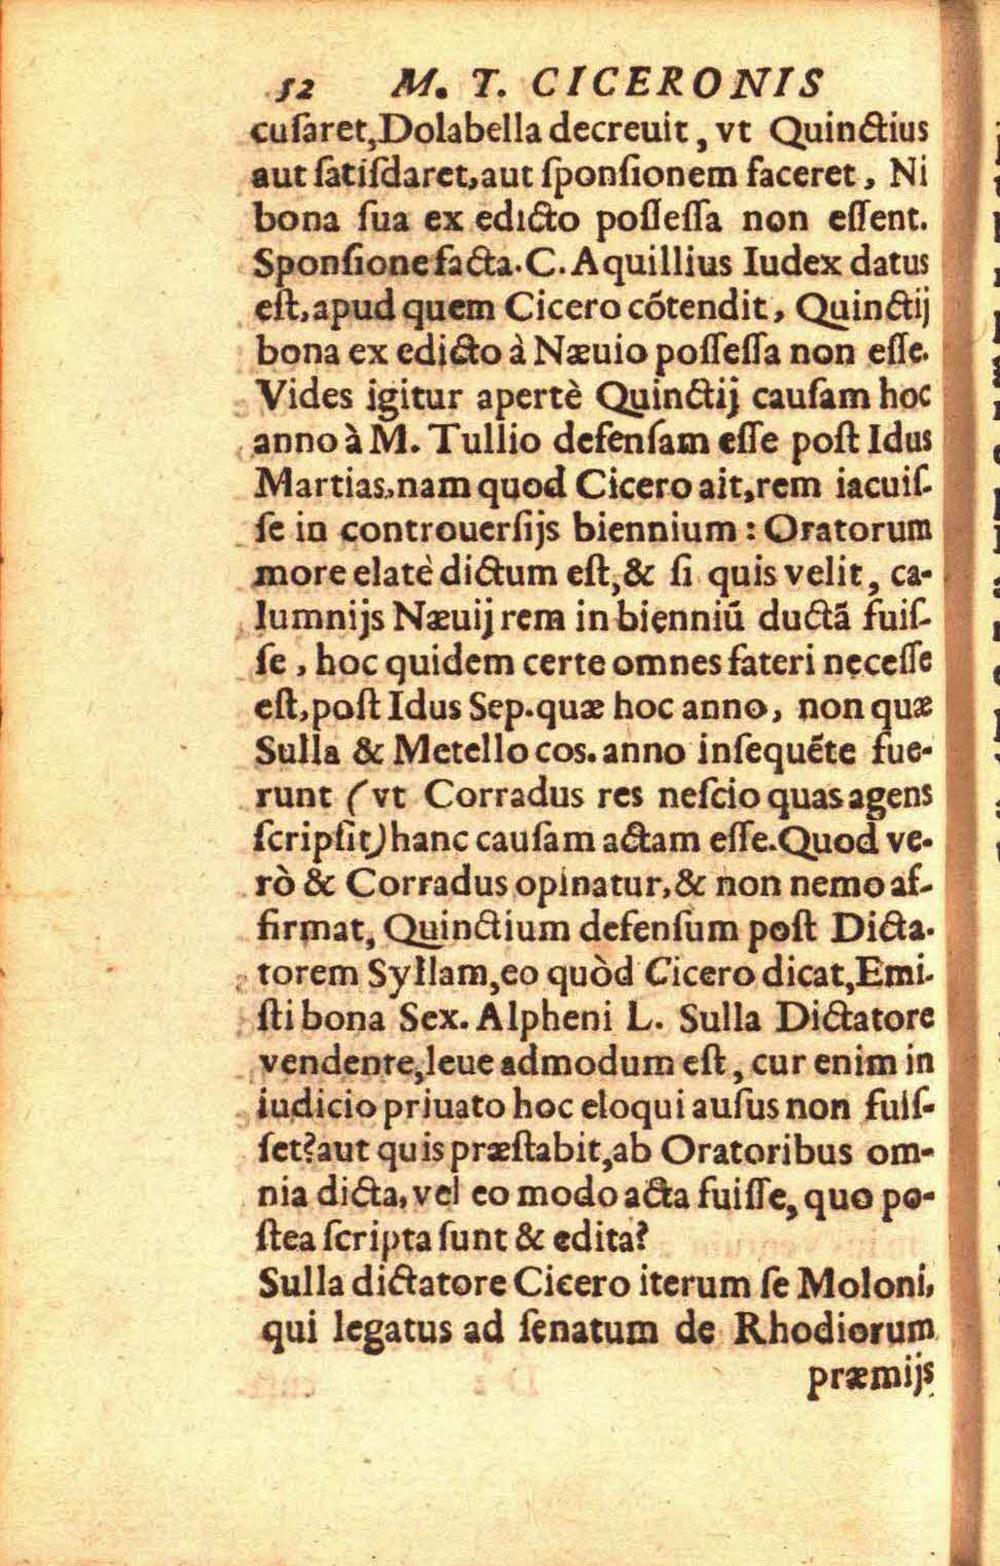 52 M. T. CICERONIS
cuſaret, Dolabella decreuit, vt Quinctius
aut ſatiſdaret, aut ſponſionem faceret, Ni
bona ſua ex edicto poſſeſſa non eſſent.
Sponſione facta. C. Aquillius Iudex datus
eſt, apud quem Cicero cõtendit, Quinctij
bona ex edicto à Næuio poſſeſſa non eſſe.
Vides igitur apertè Quinctij cauſam hoc
anno à M. Tullio defenſam eſſe poſt Idus
Martias, nam quod Cicero ait, rem iacuiſ-
ſe in controuerſijs biennium: Oratorum
more elatè dictum eſt, & ſi quis velit, ca-
lumnijs Næuij rem in bienniū ductā fuiſ-
ſe, hoc quidem certe omnes fateri neceſſe
eſt, poſt Idus Sep. quæ hoc anno, non quæ
Sulla & Metello cos. anno inſequẽte fue-
runt (vt Corradus res neſcio quas agens
ſcripſit) hanc cauſam actam eſſe. Quod ve-
rò & Corradus opinatur, & non nemo aſ-
firmat, Quinctium defenſum poſt Dicta-
torem Syllam, eo quòd Cicero dicat, Emi-
ſti bona Sex. Alpheni L. Sulla Dictatore
vendente, leue admodum eſt, cur enim in
iudicio priuato hoc eloqui auſus non fuiſ-
ſet? aut quis præſtabit, ab Oratoribus om-
nia dicta, vel eo modo acta fuiſſe, quo po-
ſtea ſcripta ſunt & edita?
Sulla dictatore Cicero iterum ſe Moloni,
qui legatus ad ſenatum de Rhodiorum
præmijs